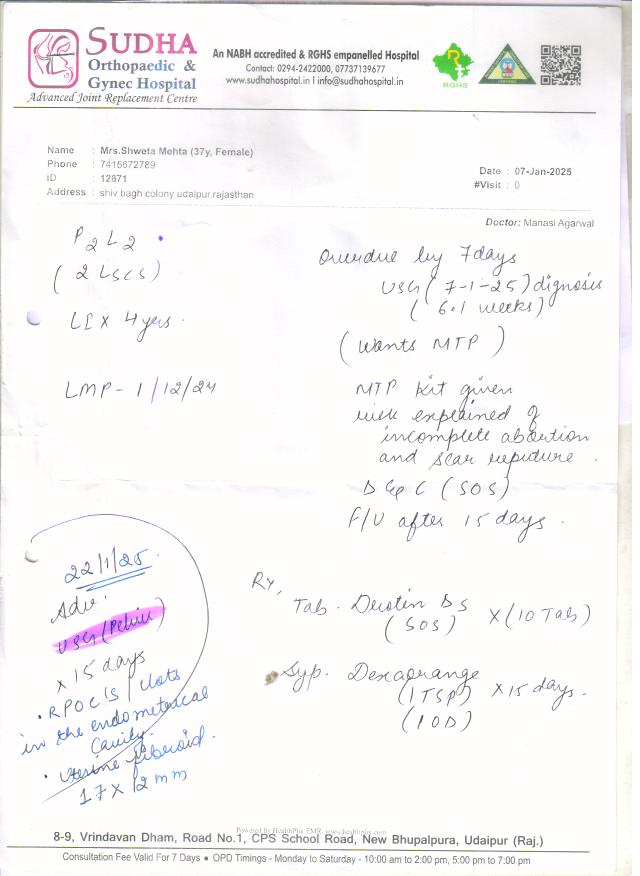 SUDHA
Orthopaedic &
Gynec Hospital
Advanced Joint Replacement Centre
An NABH accredited & RGHS empanelled Hospital
Contact: 0294-2422000, 07737139677
www.sudhahospital.in I info@sudhahospital.in
RGHS
Name : Mrs.Shweta Mehta (37y, Female)
Phone : 7415672789
ID : 12871
Address : shiv bagh colony udaipur,rajasthan
Date : 07-Jan-2025
#Visit : 0
Doctor: Manasi Agarwal
P2L2
(2 LSCS)
LI x 4 yrs.
LMP - 1/12/24
Overdue by 7 days
USG (7-1-25) dignosis
(6.1 weeks)
(Wants MTP)
MTP kit given
risk explained of
incomplete abortion
and scar repture.
D & C (SOS)
F/U after 15 days.
22/1/25.
Adv.
USG (Pelvic)
x 15 days
. RPOC'S / clots
in the endometrical
Cavity.
. Uterine fiberoid.
17 x 12 mm
Rx,
Tab. DS x (10 Tab)
(SOS)
Syp. Dexaorange x 15 days.
(1 TSP)
(1OD)
Powered by HealthPlix EMR. www.healthplix.com
8-9, Vrindavan Dham, Road No.1, CPS School Road, New Bhupalpura, Udaipur (Raj.)
Consultation Fee Valid For 7 Days • OPD Timings - Monday to Saturday - 10:00 am to 2:00 pm, 5:00 pm to 7:00 pm